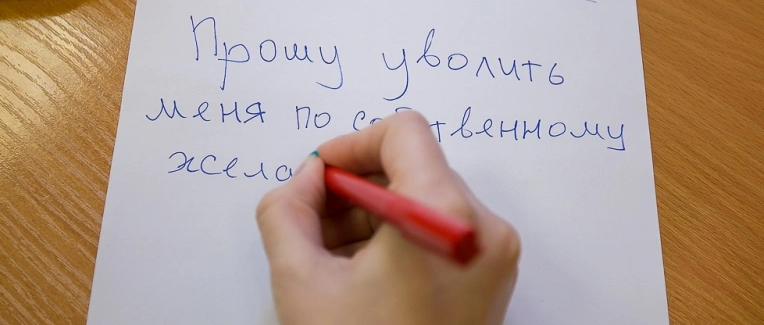 Прошу уволить
меня по собственному
жела